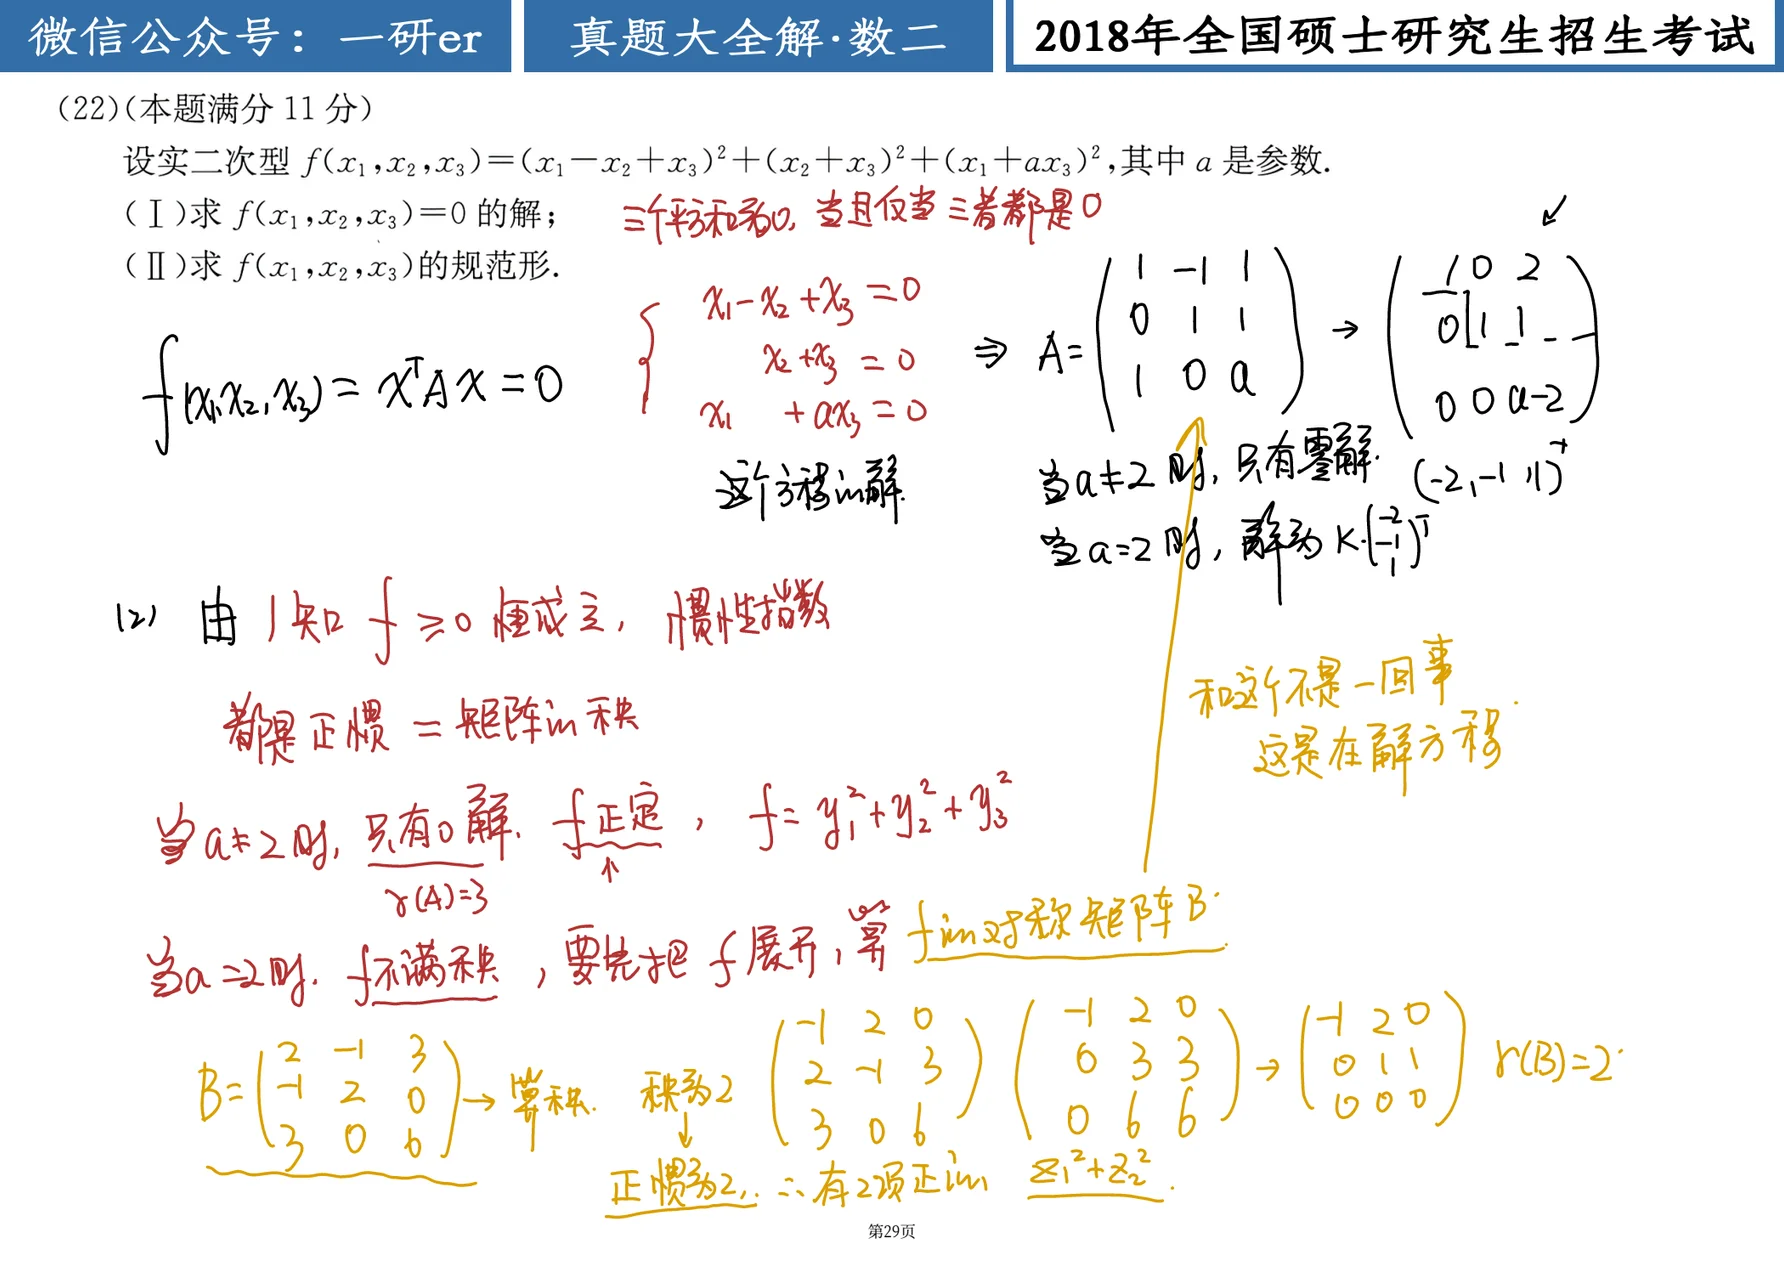 微信公众号：一研er
真题大全解·数二
2018年全国硕士研究生招生考试
(22)(本题满分 11 分)
设实二次型 f(x₁,x₂,x₃)=(x₁-x₂+x₃)²+(x₂+x₃)²+(x₁+ax₃)²,其中 a 是参数.
(Ⅰ)求 f(x₁,x₂,x₃)=0 的解;
三个平方和为0, 当且仅当 三者都是0
(Ⅱ)求 f(x₁,x₂,x₃)的规范形.
f(x₁,x₂,x₃) = xᵀAx = 0
x₁-x₂+x₃=0
x₂+x₃=0
x₁ +ax₃=0
这个方程in解.
⇒ A=
1 -1 1
0 1 1
1 0 a
→
1 0 2
0 1 1
0 0 a-2
当a≠2时, 只有零解.
(-2,-1,1)ᵀ
当a=2时, 解为 K·
-2
-1
1
T
(2) 由 1知 f ≥0 恒成立, 惯性指数
都是正惯 = 矩阵in秩
和这个不是一回事.
这是在解方程
当a≠2时, 只有0解. f正定, f= y₁²+y₂²+y₃²
r(A)=3
当a=2时. f不满秩, 要先把 f 展开, 算 f in对称矩阵B.
B=
2 -1 3
-1 2 0
3 0 6
→ 算秩. 秩为2
-1 2 0
2 -1 3
3 0 6
-1 2 0
0 3 3
0 6 6
→
-1 2 0
0 1 1
0 0 0
r(B)=2.
正惯为2, ∴有2项正in z₁²+z₂².
第29页